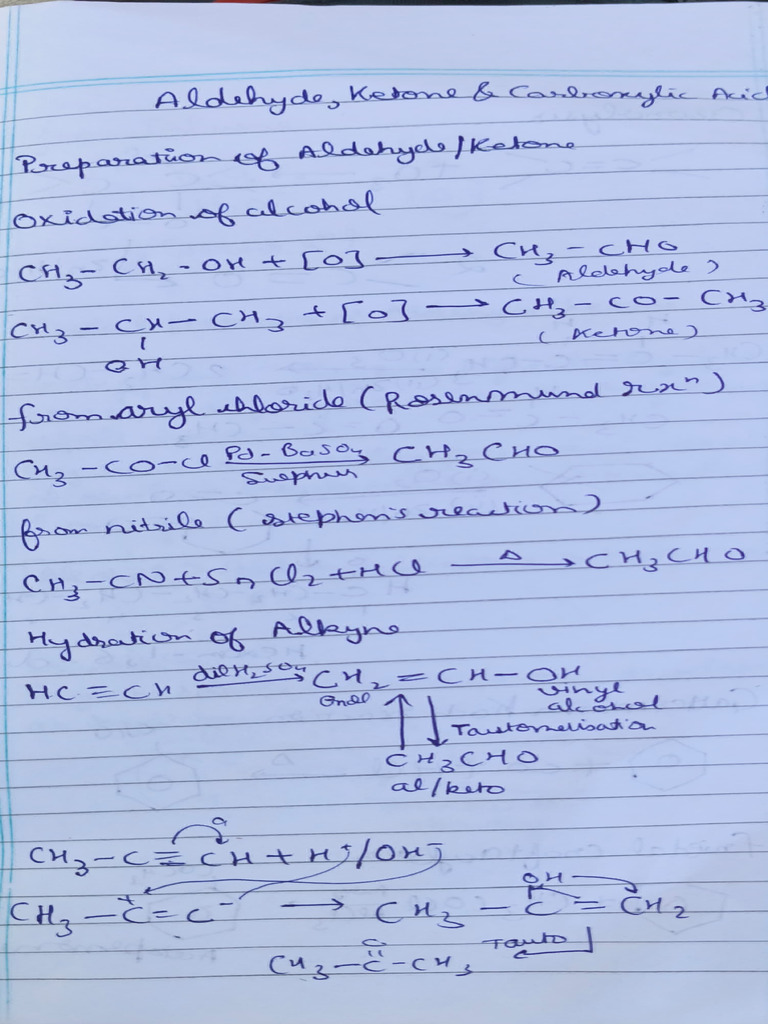 Aldehyde, Ketone & Carboxylic Acid
Preparation of Aldehyde/Ketone
Oxidation of alcohol
CH₃ – CH₂ - OH + [O] ⟶ CH₃ – CHO
(Aldehyde)
CH₃ – CH – CH₃ + [O] ⟶ CH₃ – CO – CH₃
OH
(Ketone)
from aryl chloride (Rosenmund rxⁿ)
CH₃ – CO – Cl Pd - BaSO₄ CH₃ CHO
Sulphur
from nitrile (stephen's reaction)
CH₃ – CN + Sn Cl₂ + HCl Δ ⟶ CH₃ CHO
Hydration of Alkyne
HC ≡ CH dil H₂SO₄ ⟶ CH₂ = CH – OH
Enol vinyl
alcohol
↑ ↓ Tautomerisation
CH₃CHO
al/keto
CH₃ – C ≡ CH + H⁺/OH⁻
OH
CH₃ – C⁺ = C⁻ ⟶ CH₃ – C = CH₂
Tauto
O
CH₃ – C – CH₃